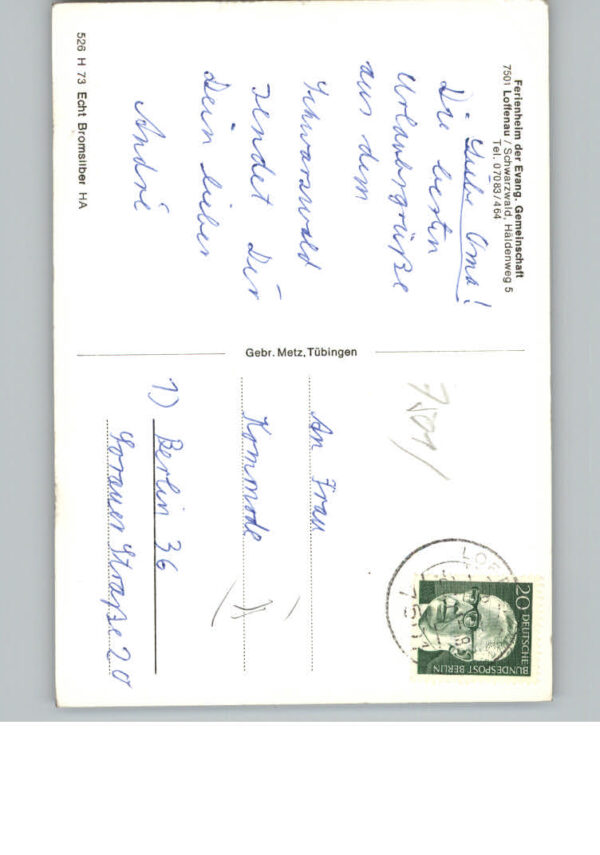 Ferienheim der Evang. Gemeinschaft
7501 Loffenau / Schwarzwald, Häldenweg 5
Tel. 07083/464
Liebe Oma!
Die besten
Urlaubsgrüße
aus dem
Schwarzwald
sendet Dir
Dein lieber
André
526 H 73 Echt Bromsilber HA
Gebr. Metz, Tübingen
7501/
20 DEUTSCHE
BUNDESPOST BERLIN
An Frau
Kommode
1) Berlin 36
Sorauer Straße 20